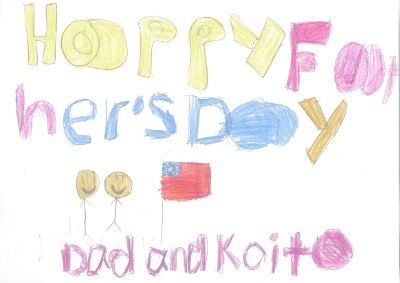 Happy Fat
her's Day
Dad and Kaito